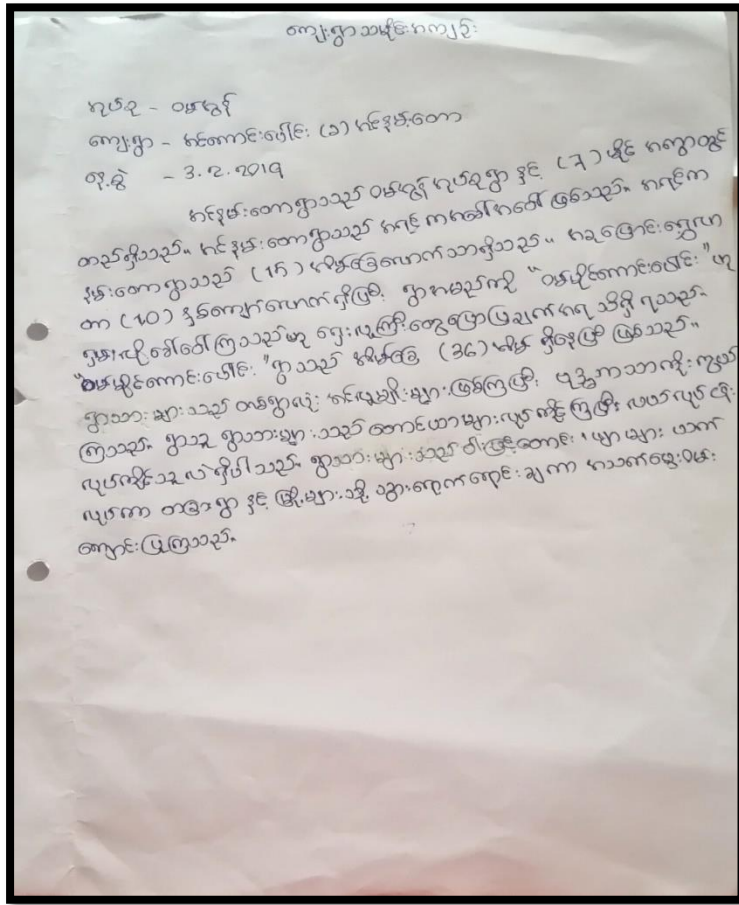 ကျေးရွာသမိုင်းအကျဉ်း
အုပ်စု - ဝမ်ဟွန်
ကျေးရွာ - အင်တောင်းပေါင်း (ခ) အင်နမ်းတော
နေ့စွဲ - 3.2.2019
အင်နမ်းတောရွာသည် ဝမ်ဟွန် အုပ်စုရွာ နှင့် (7) မိုင် အကွာတွင်
တည်ရှိသည်။ အင်နမ်းတောရွာသည် အရင်ကအခေါ်အဝေါ် ဖြစ်သည်။ အရင်က
နမ်းတောရွာသည် (15) အိမ်ခြေလောက်သာရှိသည်။ အခု ပြောင်းရွှေ့လာ
တာ (10) နှစ်ကျော်လောက်ရှိပြီ။ ရွာအမည်ကို "ဝမ်မိုင်ကောင်းပေါင်း" ဟု
ရှမ်းလိုခေါ်ဝေါ်ကြသည်ဟု ရှေးလူကြီးတွေပြောပြချက်အရ သိရှိရသည်။
"ဝမ်မိုင်ကောင်းပေါင်း" ရွာသည် အိမ်ခြေ (36) အိမ် ရှိနေပြီ ဖြစ်သည်။
ရွာသားများသည် တစ်ရွာလုံး အင်လူမျိုးများဖြစ်ကြပြီး ဗုဒ္ဓဘာသာကိုးကွယ်
ကြသည်။ ရွာသူ ရွာသားများသည် တောင်ယာများလုပ်ကိုင်ကြပြီး လယ်လုပ်ငန်း
လုပ်ကိုင်သူလဲရှိပါသည်။ ရွာသားများသည် ဝါးဖြင့်တောင်း၊ ဖျာများ ယက်
လုပ်ကာ တခြားရွာ နှင့် မြို့များသို့ သွားရောက်ရောင်းချကာ အသက်မွေးဝမ်း
ကျောင်းပြုကြသည်။